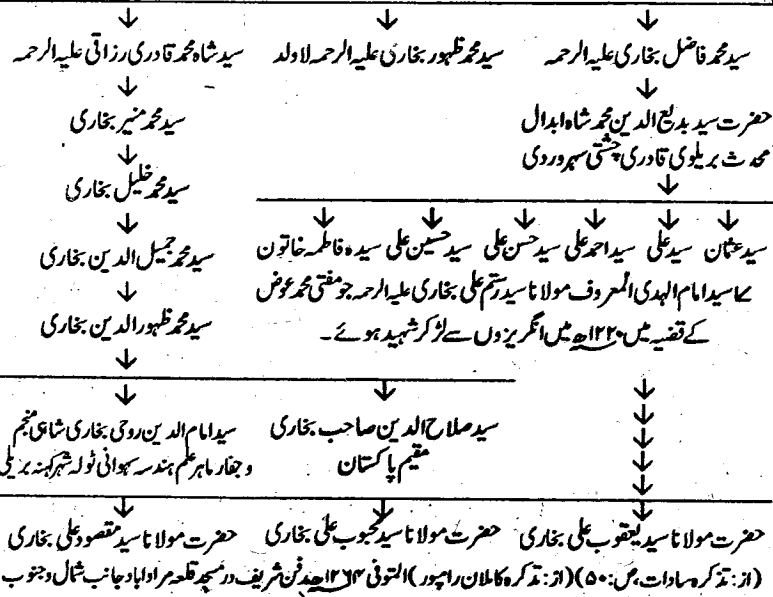 سید محمد فاضل بخاری علیہ الرحمہ سید محمد ظہور بخاری علیہ الرحمہ لاولد سید شاہ محمد قادری رزاقی علیہ الرحمہ
حضرت سید بدیع الدین محمد شاہ ابدال سید محمد منیر بخاری
محدث بریلوی قادری چشتی سہروردی
سید محمد خلیل بخاری
سید عثمان سید علی سید احمد علی سید حسن علی سید حسین علی سیدہ فاطمہ خاتون سید محمد جمیل الدین بخاری
۷ سید امام الہدی المعروف مولانا سید رستم علی بخاری علیہ الرحمہ جو مفتی محمد عوض
کے قضیہ میں ۱۲۲۰ھ میں انگریزوں سے لڑ کر شہید ہوئے۔ سید محمد ظہور الدین بخاری
سید صلاح الدین صاحب بخاری سید امام الدین روحی بخاری شاہی منجم
مقیم پاکستان و جفار ماہر علم ہندسہ سہوانی ٹولہ شہر کہنہ بریلی
حضرت مولانا سید یعقوب علی بخاری حضرت مولانا سید محبوب علی بخاری حضرت مولانا سید مقصود علی بخاری
(از: تذکرہ سادات، ص: ۵۰) (از: تذکرہ کاملان رامپور) المتوفی ۱۲۶۴ھ مدفن شریف در مسجد قلعہ مراداباد جانب شمال و جنوب